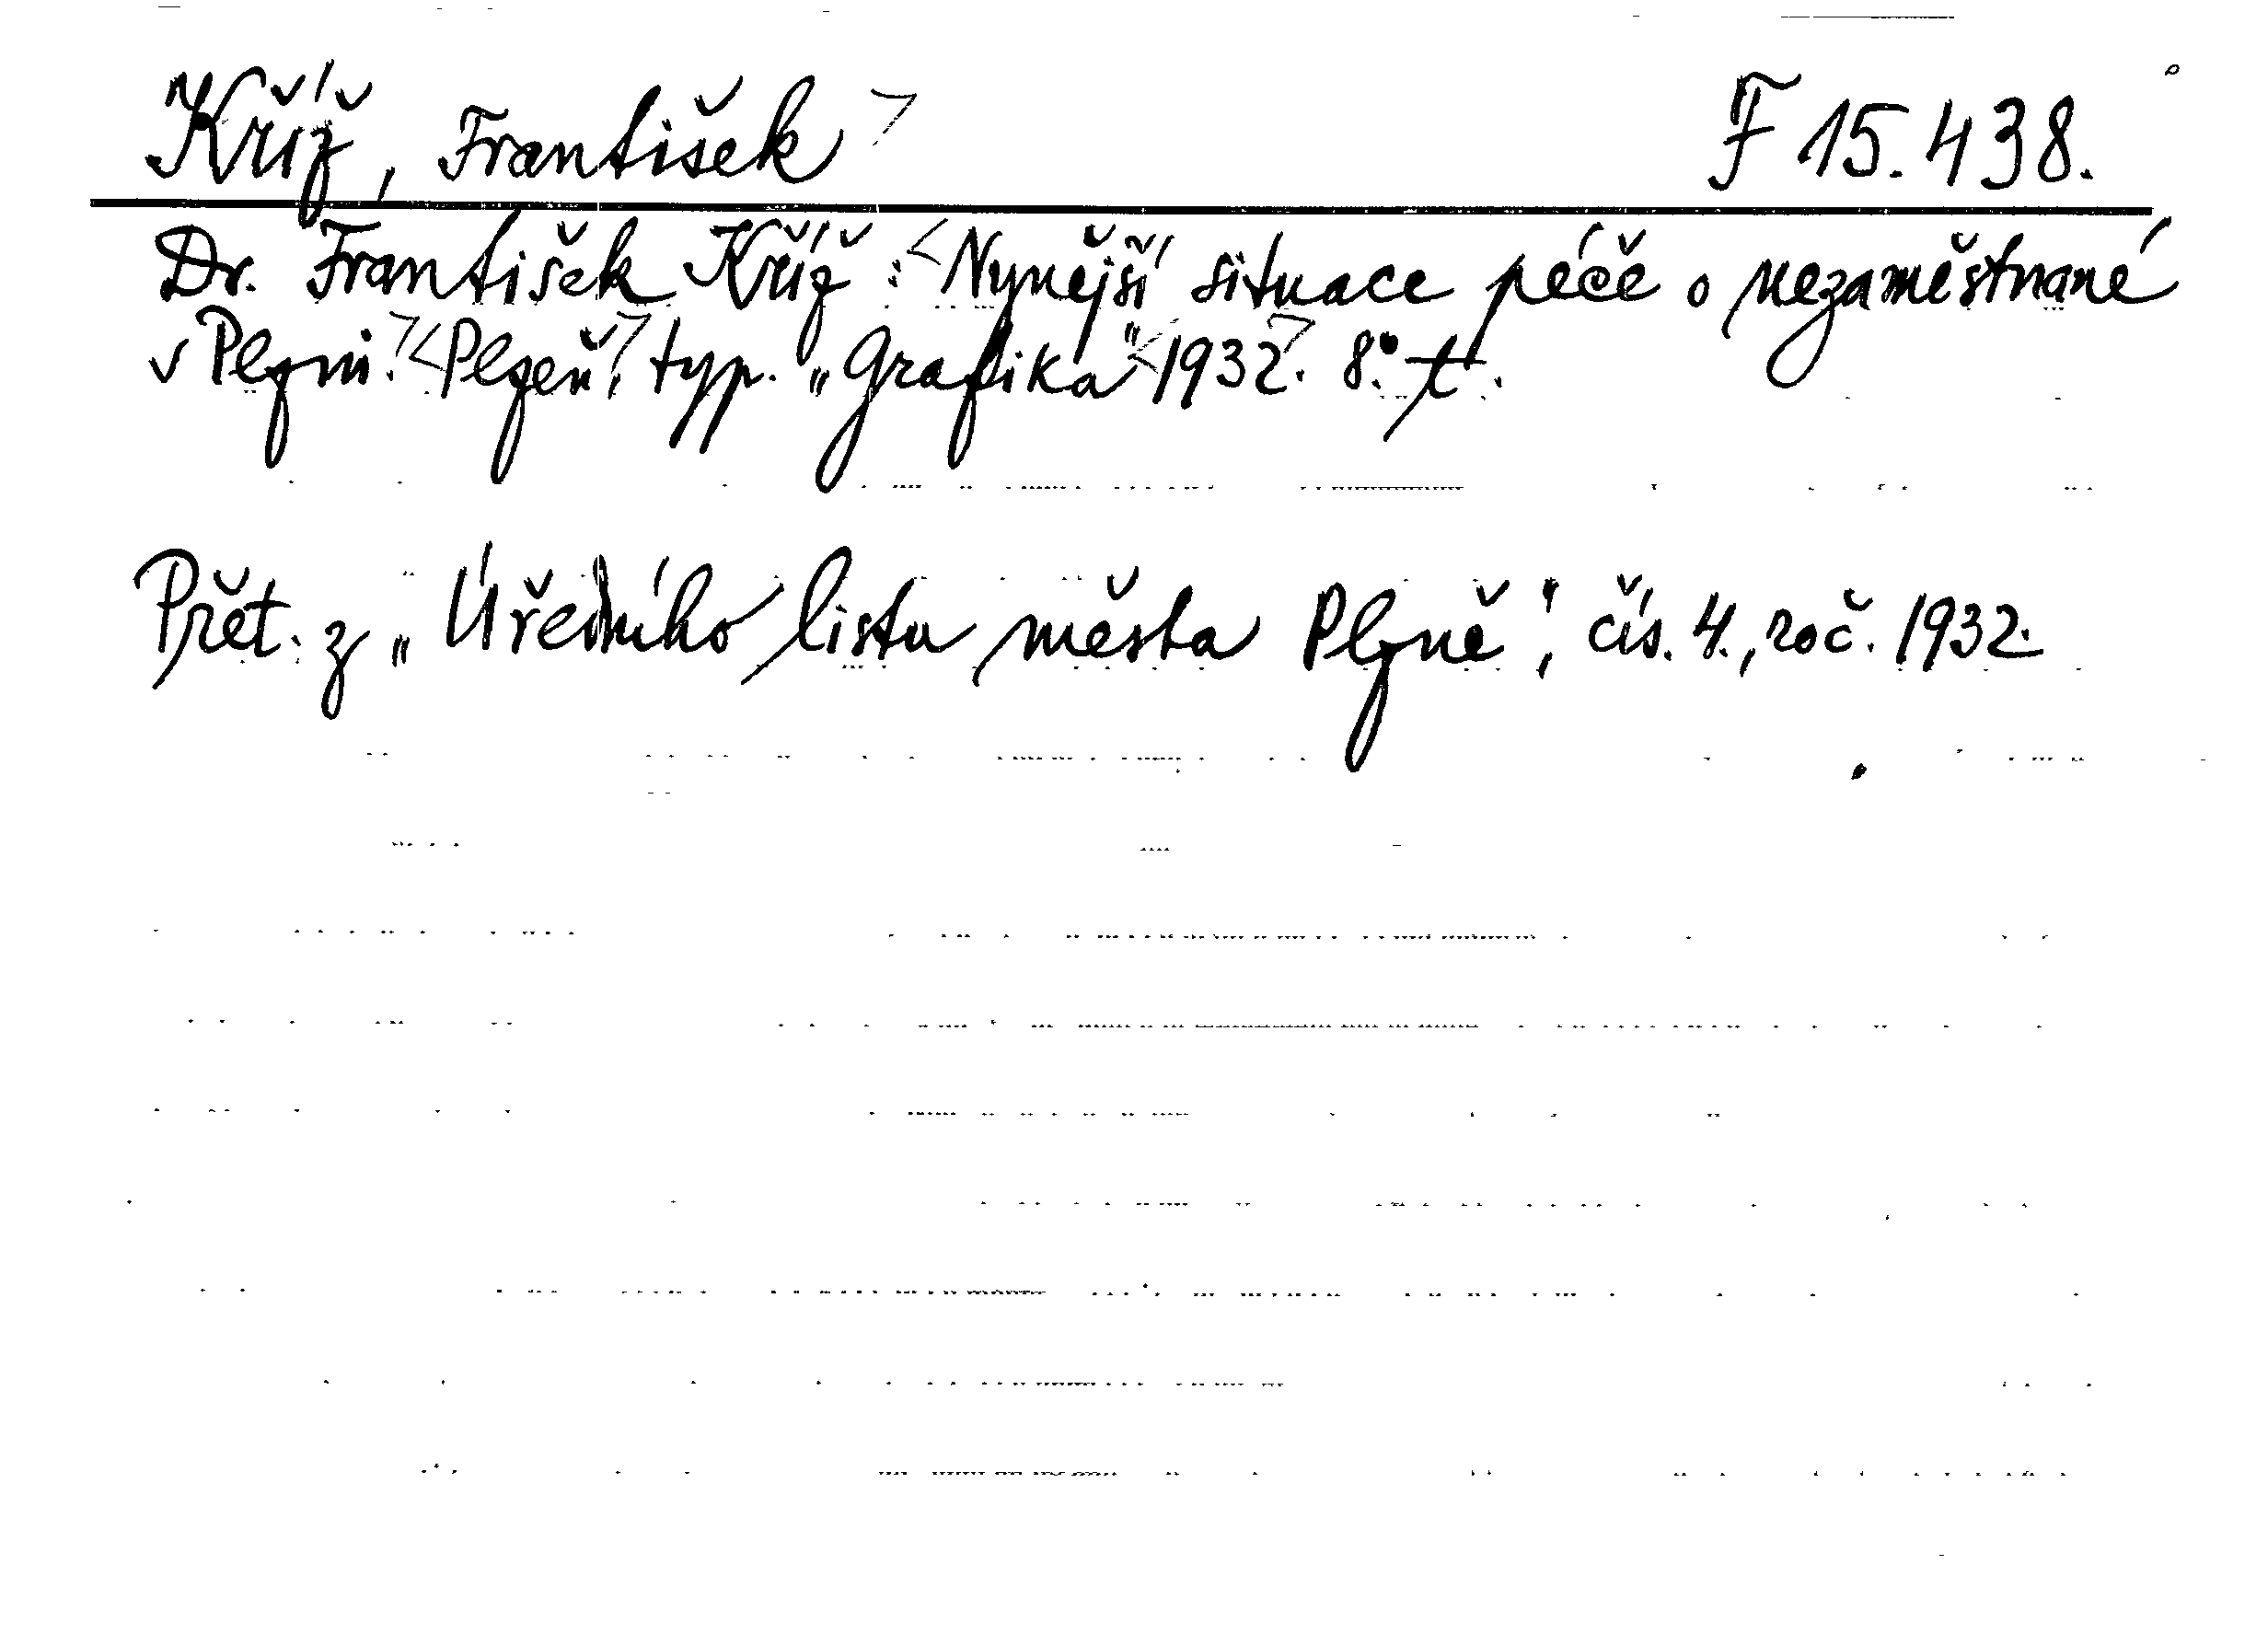 Kříž, František F 15.438.
Dr. František Kříž: Nynější situace péče o nezaměstnané
v Plzni. Plzeň, typ. „Grafika" 1932. 8.° t.
Přet. z „Úředního listu města Plzně", čís. 4., roč. 1932.